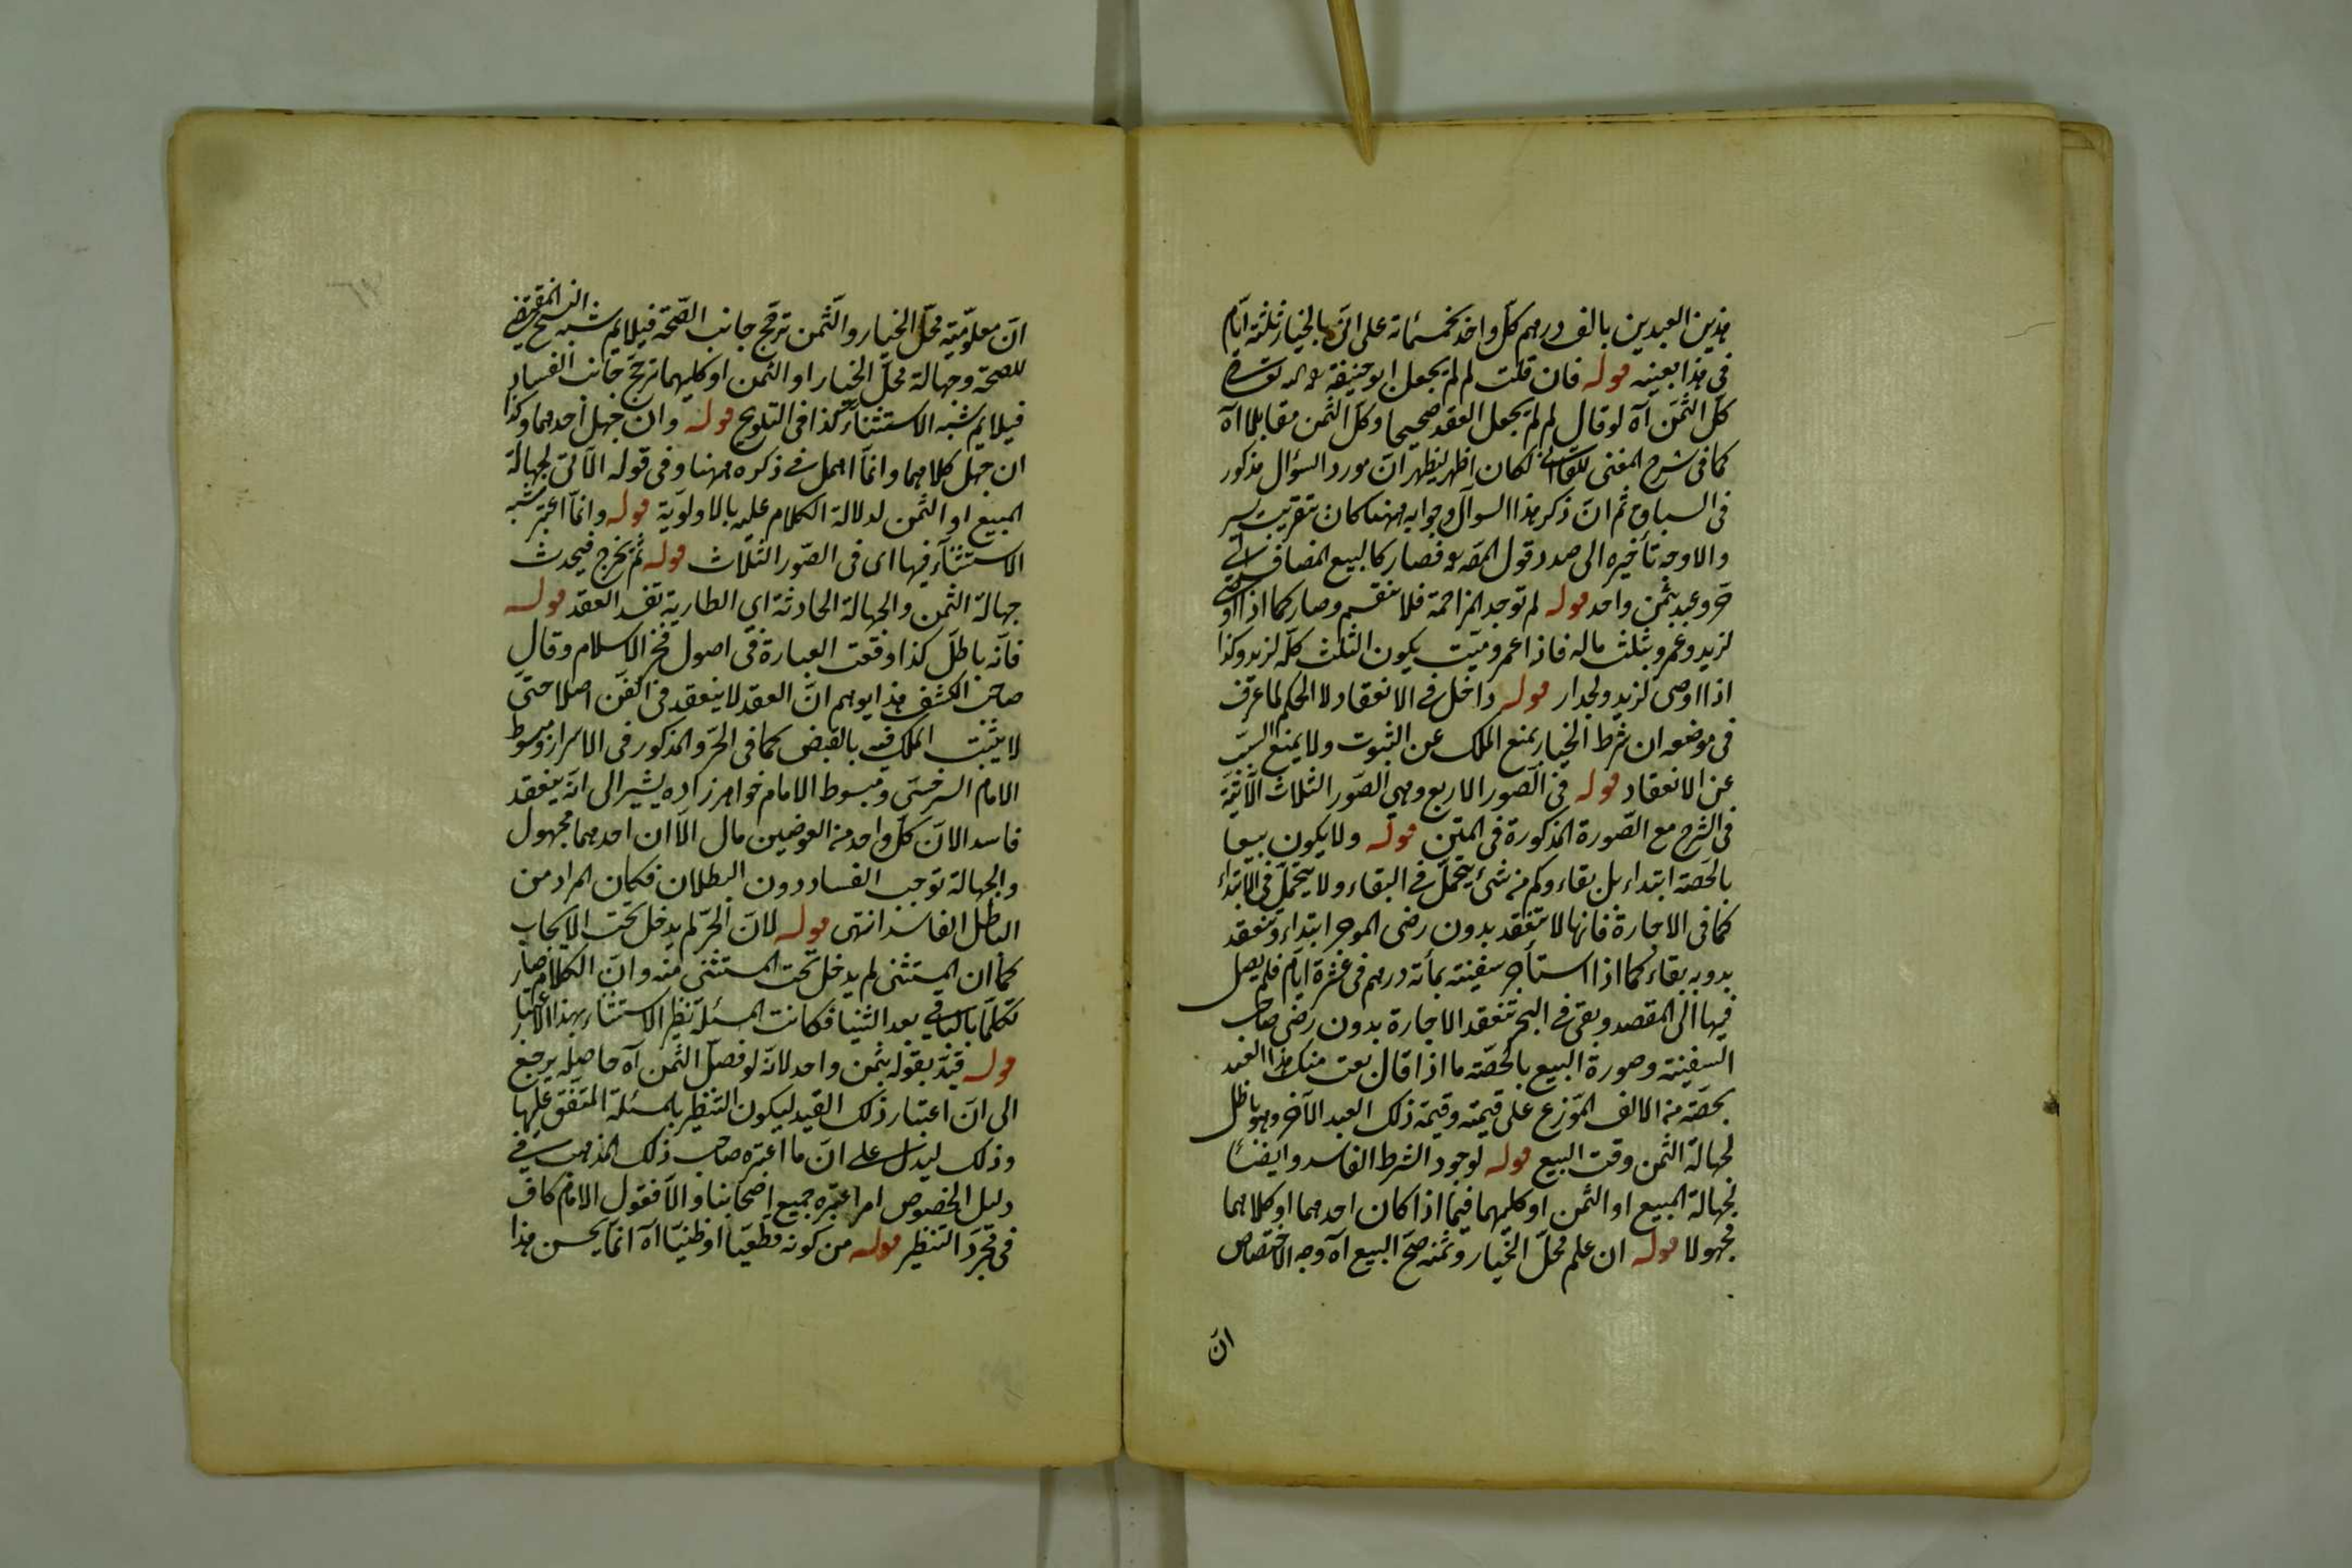 هذين العبدين بالف درهم كلّ واحد بخمسمائة على انّى بالخيار ثلثة ايّام
فى هذا بعينه قوله فان قلت لم لم يجعل ابو حنيفة
كلّ الثّمن آه لو قال لم لم يجعل العقد صحيحا وكلّ الثمن مقابلا آه
كما فى شرح المغنى للقاآنى لكان اظهر ليظهر انّ مورد السؤال مذكور
فى السباق ثم انّ ذكر هذا السوآل وجوابه ههنا كان بتقريب يسير
والاوجه تأخيره الى صدد قول المصـ فصار كالبيع المضاف الى
حرّ وعبد بثمن واحد قوله لم توجد المزاحمة فلا ينقسم وصار كما اذا اوصى
لزيد وعمرو بثلث ماله فاذا عمرو ميّت يكون الثلث كلّه لزيد وكذا
اذا اوصى لزيد ولجدار قوله داخل فى الانعقاد لا الحكم لما عرف
فى موضعه ان شرط الخيار يمنع الملك عن الثبوت ولا يمنع السبب
عن الانعقاد قوله فى الصّور الاربع وهى الصّور الثلاث الآتية
فى الشرح مع الصّورة المذكورة فى المتن قوله ولا يكون بيعا
بالحصّة ابتداء بل بقاء وكم من شئ يتحمّل فى البقاء ولا يتحمّل فى الابتداء
كما فى الاجارة فانها لا تنعقد بدون رضى الموجر ابتداء وتنعقد
بدونه بقاء كما اذا استأجر سفينة بمأة درهم فى عشرة ايّام فلم يصل
فيها الى المقصد وبقى فى البحر تنعقد الاجارة بدون رضى صاحب
السفينة وصورة البيع بالحصّة ما اذا قال بعت منك هذا العبد
بحصّته من الالف الموّزع على قيمته وقيمة ذلك العبد الآخر وهو باطل
لجهالة الثمن وقت البيع قوله لوجود الشرط الفاسد وايضا
لجهالة المبيع او الثمن او كليهما فيما اذا كان احدهما او كلاهما
مجهولا قوله ان علم محلّ الخيار وثمنه صحّ البيع آه وجه الاختصاص
انّ
انّ معلوميّة محلّ الخيار والثّمن ترجّح جانب الصّحة فيلايم شبه النسخ المقتضى
للصحّة وجهالة محلّ الخيار او الثمن او كليهما ترجّح جانب الفساد
فيلايم شبه الاستثناء كذا فى التلويح قوله وان جهل احدهما وكذا
ان جهل كلاهما وانّما اهمل فى ذكره ههنا وفى قوله الآتى لجهالة
المبيع او الثّمن لدلالة الكلام عليه بالاولويّة قوله وانّما اعتبر شبه
الاستثنآء فيها اى فى الصّور الثّلاث قوله ثم يخرج فيحدث
جهالة الثمن والجهالة الحادثة اى الطارية تفسد العقد قوله
فانّه باطل كذا وقعت العبارة فى اصول فخر الاسلام وقال
صاحب الكشف هذا يوهم انّ العقد لا ينعقد فى القنّ اصلا حتى
لا يثبت الملك فيه بالقبض كما فى الحرّ والمذكور فى الاسرار ومبسوط
الامام السرخسى ومبسوط الامام خواهر زاده يشير الى انّه ينعقد
فاسدا لانّ كلّ واحد من العوضين مال الّا ان احدهما مجهول
والجهالة توجب الفساد دون البطلان فكان المراد من
الباطل الفاسد انتهى قوله لانّ الحرّ لم يدخل تحت الايجاب
كما ان المستثنى لم يدخل تحت المستثنى منه وانّ الكلام صار
تكلّما بالباقى بعد الثنيا فكانت المسئلة نظير الاستثناء بهذا الاعتبار
قوله قيّد بقوله بثمن واحد لانّه لو فصّل الثّمن آه حاصله يرجع
الى انّ اعتبار ذلك القيد ليكون التنظير بالمسئلة المتّفق عليها
وذلك ليدلّ على انّ ما اعتبره صاحب ذلك المذهب فى
دليل الخصوص امر اعتبره جميع اصحابنا والّا فقول الامام كاف
فى مجرّد التنظير قوله من كونه قطعيّا او ظنيّا آه انّما يحسن هذا